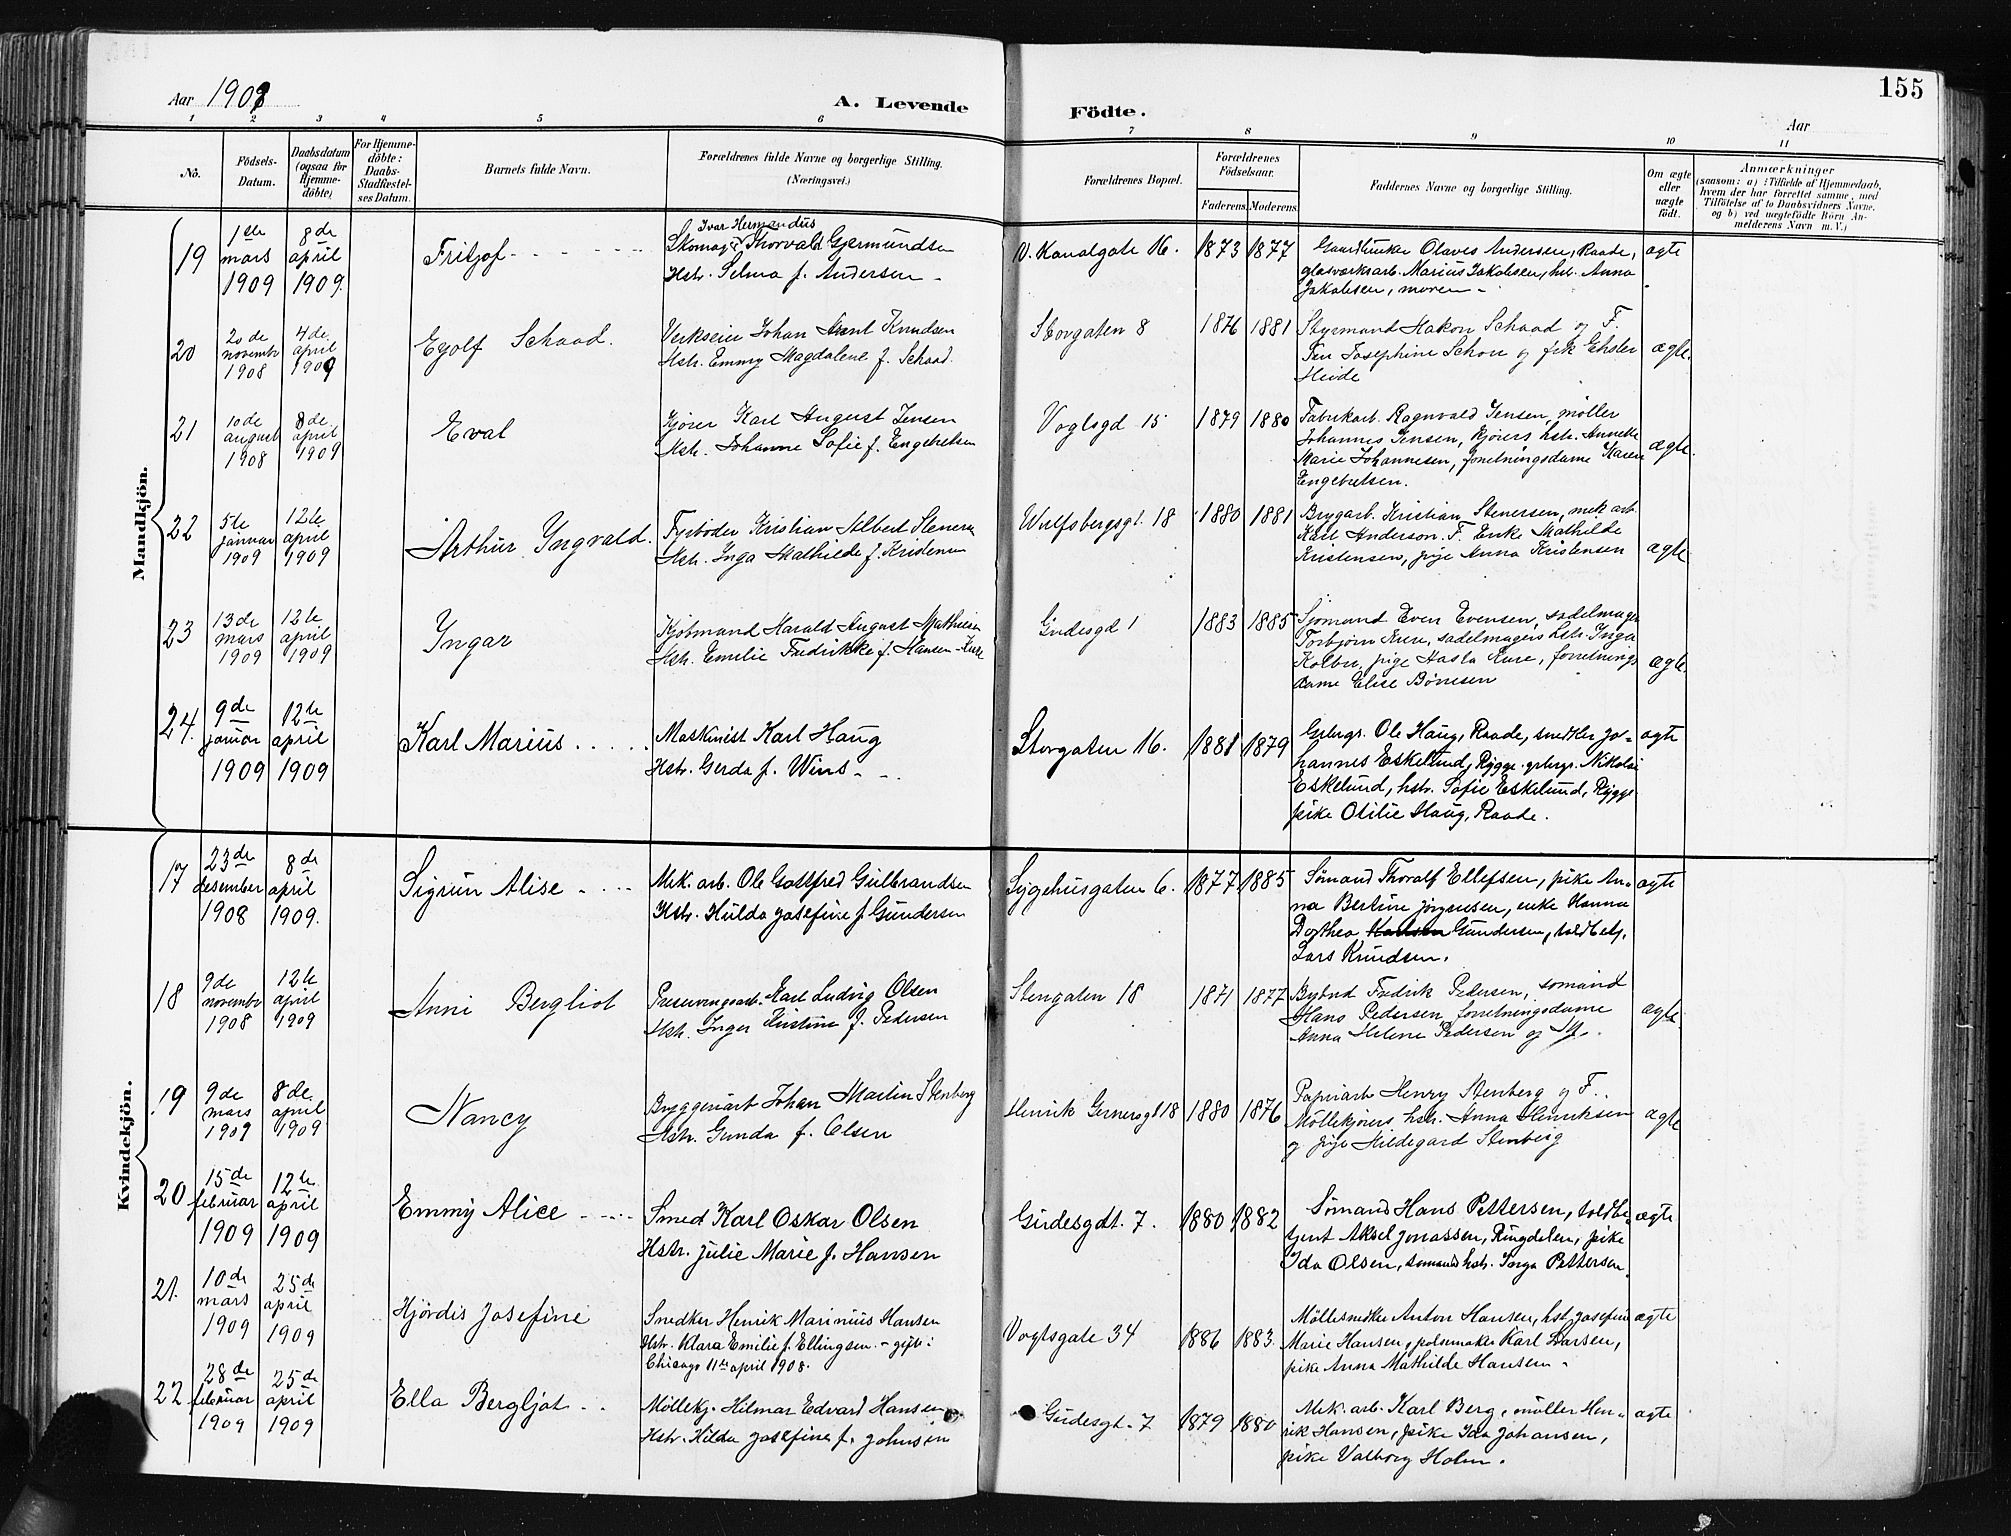 155
Aar 1909
A. Levende
Födte.
Aar
1 2 3 4 5 6 7 8 9 10 11
No.
Födsels-
Datum.
Daabsdatum
(ogsaa for
Hjemme-
döbte)
For Hjemme-
döbte:
Daabs-
Stadfæstel-
ses Datum.
Barnets fulde Navn.
Forældrenes fulde Navne og borgerlige Stilling.
(Næringsvei.)
Forældrenes Bopæl.
Forældrenes
Födselsaar.
Faderens. Moderens.
Faddernes Navne og borgerlige Stilling.
Om ægte
eller
uægte
født.
Anmærkninger
(saasom: a) i Tilfælde af Hjemmedaab,
hvem der har forrettet samme, med
Tilföielse af to Daabsvidners Navne,
og b) ved uægtefödte Börn An-
melderens Navn m.V.)
Mandkjön.
19
1ste
mars
1909
8de
april
1909.
Fritjof
Ivar Hermandus
Skomag. Thorvald Gjermundsen
Hstr. Selma f. Andersen
V. Kanalgate 16.
1873 1877
Olaves Andersen, Raade,
glasværksarb. Marius Jakobsen, hst. Anna
Jakobsen, moren
ægte
20
20de
novembr
1908
4de
april
1909
Egolf Schaad.
Verkseier Johan Knudsen
Hstr. Emmy Magdalene f. Schaad.
Storgaten 8
1876 1881
Styrmand Hakon Schaad og F.
Josephine og frk
ægte.
21
10de
august
1908
8de
april
1909
Eval
Kjører Karl August Jensen
Hstr. Johanne Sofie f. Engebretsen
Voglsgd 15
1879 1880
Fabrikarb. Ragnvald Jensen, møller
Johannes Jensen, kjørers hstr. Annette
Marie Johannesen, forretningsdame Karen
Engebretsen.
ægte.
22
5te
januar
1909
12te
april
1909
Arthur Yngvald.
Fyrbøder Kristian Albert Stenersen
Hstr. Inga Mathilde f. Kristensen
Wulfsbergsgt. 18
1880 1881
Brygarb. Kristian Stenersen, mek arb.
Karl Anderson. F. Enke Mathilde
Kristensen, pige Anna Kristensen
ægte
23
13de
mars
1909
12te
april
1909
Yngar
Kjøbmand Harald August Mathisen
Hstr. Emilie Fredrikke f. Hansen
Gudesgd 1
1883 1885
Sjømand Even Evensen, sadelmager
Torbjørn, sadelmagers hstr. Inga
Kolbu, pige, forretnings
dame Elise
ægte.
24.
9de
januar
1909
12te
april
1909
Karl Marius
Maskinist Karl Haug
Hstr. Gerda f. Wins
Storgaten 16.
1881 1879
Grbrgr. Ole Haug, Raade, snedker Jo-
hannes Eskelund, Rygge. grbrgr. Nikolai
Eskelund, hstr. Sofie Eskelund, Rygge.
pike Otilie Haug, Raade.
ægte
Kvindekjön.
17
23de
desember
1908
8de
april
1909.
Sigrun Alise
Mek. arb. Ole Gottfred Gulbrandsen
Hstr. Hulda Josefine f. Gundersen
Sygehusgaten 6.
1877 1885
Sømand Thoralf Ellefsen, pike An-
na Bertine Jörgensen, enke Hanna
Dorthea Gundersen, toldbetj.
Lars Knudsen.
ægte
18
9de
novembr
1908
12te
april
1909
Anni Bergliot
Karl Ludvig Olsen
Hstr. Inger Kristine f. Pedersen
Stengaten 18
1871 1877
Bybud Fredrik Pedersen, sømand
Hans Pedersen, forretningsdame
Anna Helene Pedersen og M.
ægte.
19
9de
mars
1909
8de.
april
1909
Nancy
Bryggeriarb Johan Martin Stenberg
Hstr. Gunda f. Olsen
Henrik Gernersgt 18
1880 1876
Papirarb Henry Stenberg og F.
Møllekjørers hstr. Anna Henriksen
og pige Hildegard Stenberg
ægte
20
15de
februar
1909
12te
april
1909
Emmy Alice
Smed Karl Oskar Olsen
Hstr. Julie Marie f. Hansen
Gudesgdt. 7.
1880 1882
Sömand Hans Pettersen, toldbe-
tjent Aksel Jonassen, Ringdalen, pike
Ida Olsen, sømands hstr. Inga Pettersen.
ægte
21.
10de
mars
1909
25de
april
1909
Hjördis Josefine
Snedker Henrik Marinius Hansen
Hstr. Klara Emilie f. Ellingsen. - gift i
Chicago 11te april 1908.
Vogtsgate 34
1886 1883
Möllesnedker Anton Hansen, hst. Josefine
Marie Hansen, pølsemaker Karl Larsen,
pike Anna Mathilde Hansen
ægte
22
28de
februar
1909
25de
april
1909
Ella Bergljot
Møllekj. Hilmar Edvard Hansen
Hstr. Hilda Josefine f. Johnsen
Gudesgt. 7
1879 1880
Mek. arb. Karl Berg, møller Hen-
rik Hansen, pike Ida Johansen,
pike Valborg Holm.
ægte